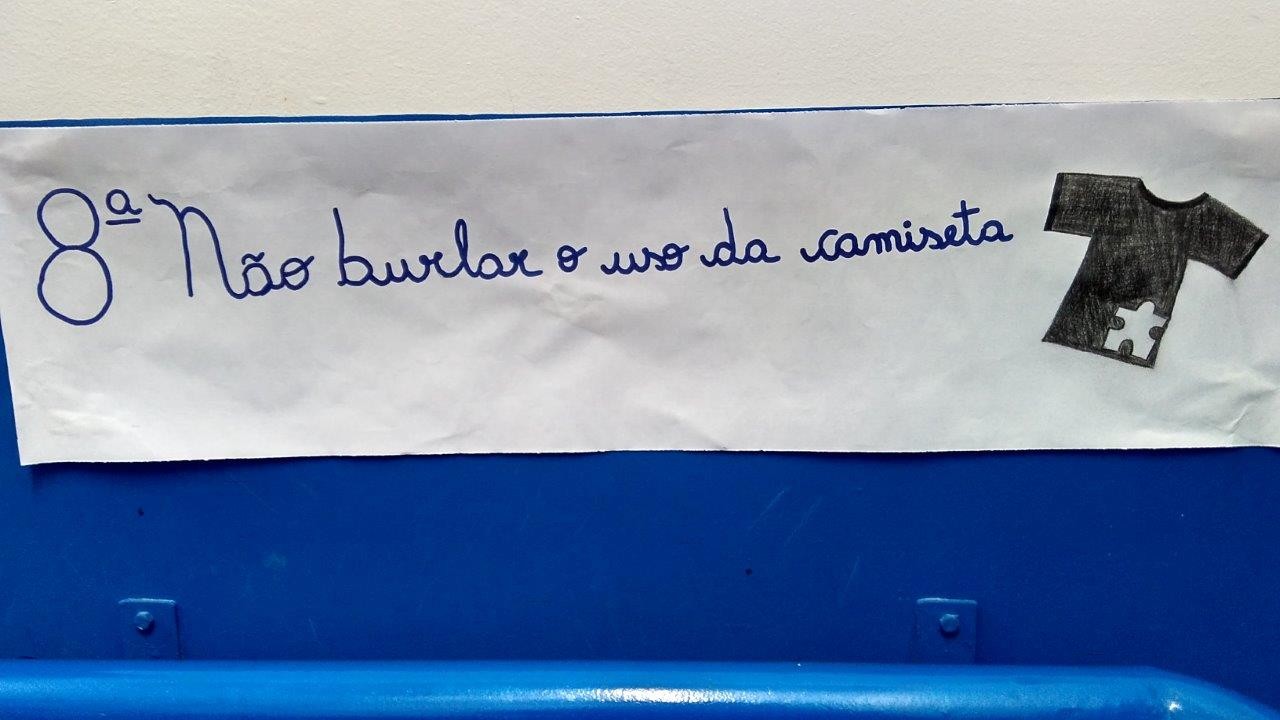 8ª Não burlar o uso da camiseta